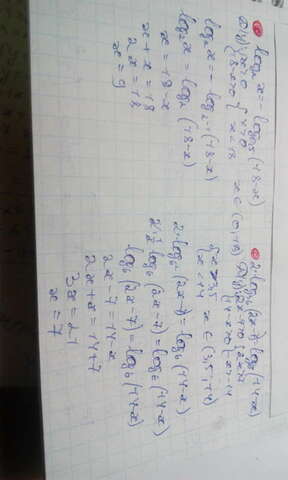 log₂ x = -log₀,₅ (18-x)
{x>0 {x>0
{18-x>0 {x<18 x ∈ (0,18)
log₂ x = -log₂-₁ (18-x)
log₂ x = log₂ (18-x)
x = 18-x
x+x = 18
2x = 18
x = 9
(2x-7) = log₆ (14-x)
{2x-7>0 {2x>7
{14-x>0 {-x>-14
{x>3,5
{x<14 x ∈ (3,5;14)
(2x-7) = log₆ (14-x)
2·½ log₆ (2x-7) = log₆ (14-x)
log₆ (2x-7) = log₆ (14-x)
2x-7 = 14-x
2x+x = 14+7
3x = 21
x = 7